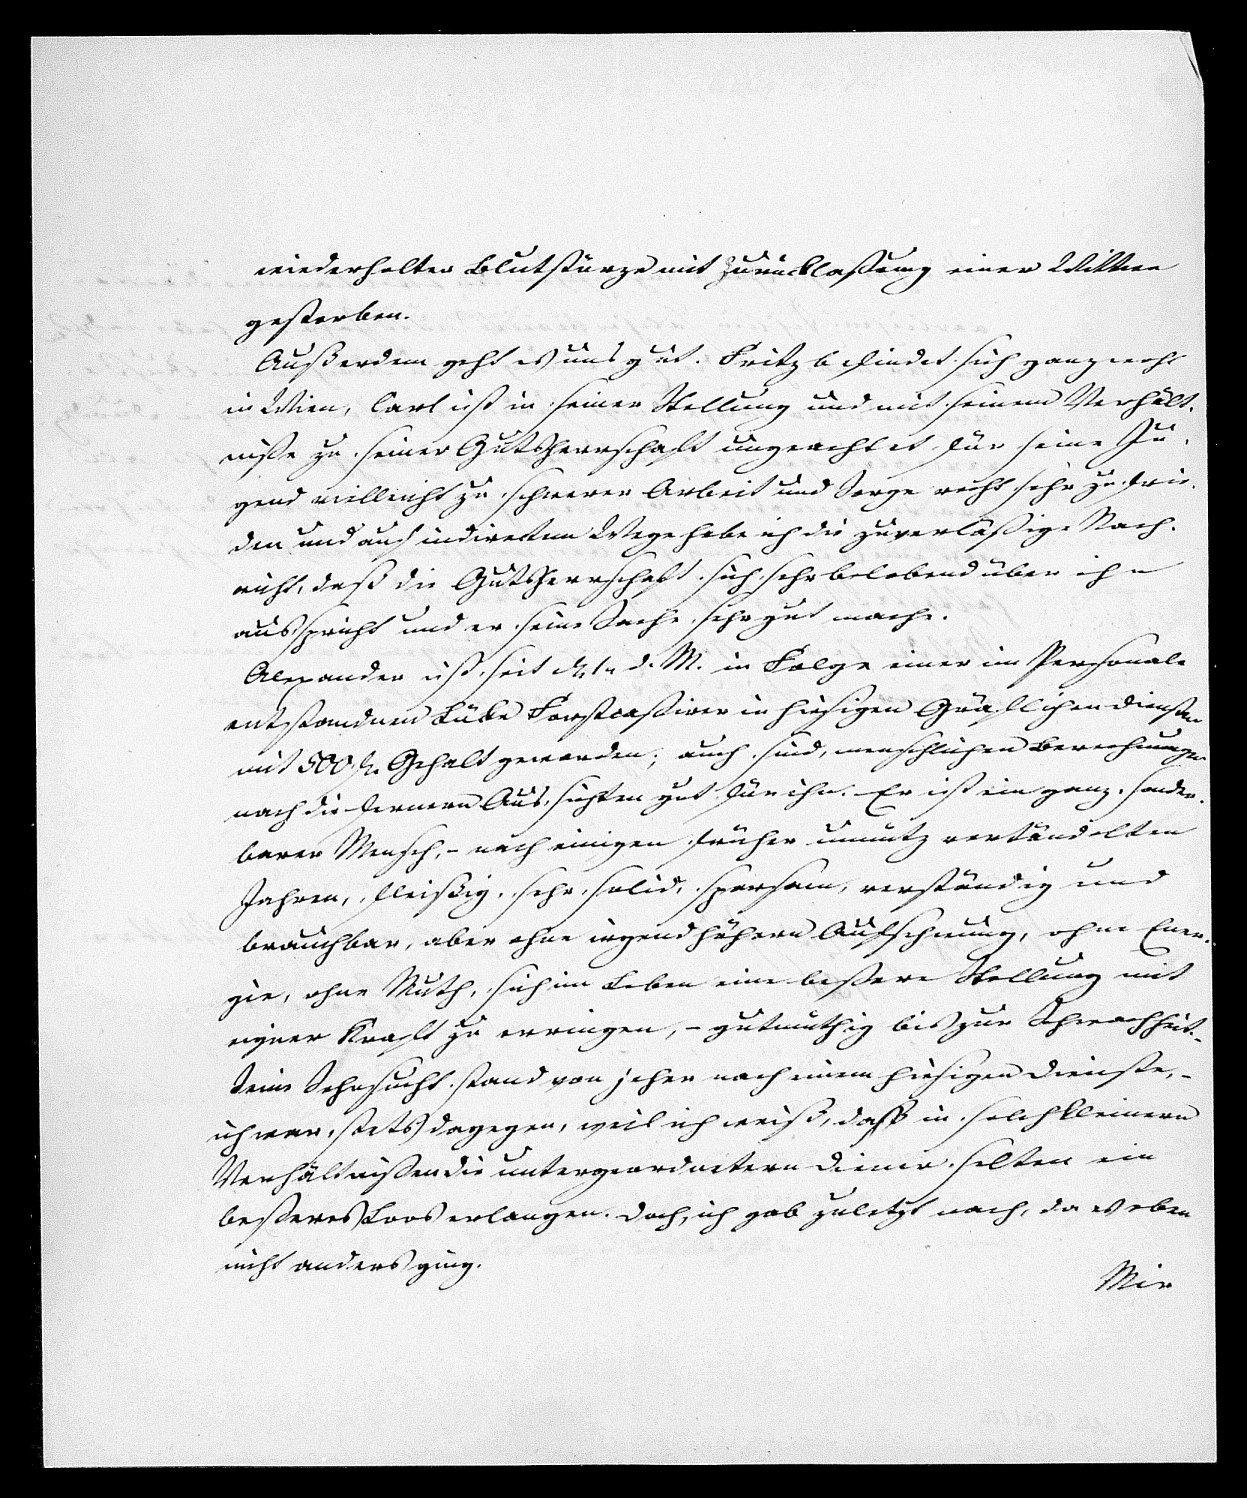 wiederholter Blutstürze mit Zurücklaßung einer Wittwe
gestorben.
Außerdem geht es uns gut. Fritz befindet sich ganz wohl
in Wien, Carl ist in seiner Stellung und mit seinem Verhält-
niße zu seiner Gutsherrschaft ungeachtet für seine Ju-
gend vielleicht zu schwerer Arbeit und Sorge recht sehr zufrie-
den und auf indirectem Wege habe ich die zuverläßige Nach-
richt, daß die Gutsherrschaft sich sehr belobend über ihn
ausspricht und er seine Sache sehr gut mache.
Alexander ist seit d. M. in Folge einer im Personale
entstandnen Lücke Forstcassirer in hiesigen Gräflichen Diensten
mit 500 Gehalt geworden; auch sind, menschlichen Berechnungen
nach die fernern Aussichten gut für ihn. Er ist ein ganz sonder-
barer Mensch, – nach einigen früher unnütz vertändelten
Jahren, fleißig, sehr solid, sparsam, verständig und
brauchbar, aber ohne irgend höhern Aufschwung, ohne Ener-
gie, ohne Muth, sich im Leben eine beßere Stellung mit
eigner Kraft zu erringen, – gutmüthig bis zur Schwachheit. –
Seine Sehnsucht stand von jeher nach einem hiesigen Dienste, –
ich war stets dagegen, weil ich weiß, daß in solch kleinern
Verhältnißen die untergeordnetern Diener selten ein
beßeres Loos erlangen. Doch, ich gab zuletzt nach, da es eben
nicht anders ging.
Mir